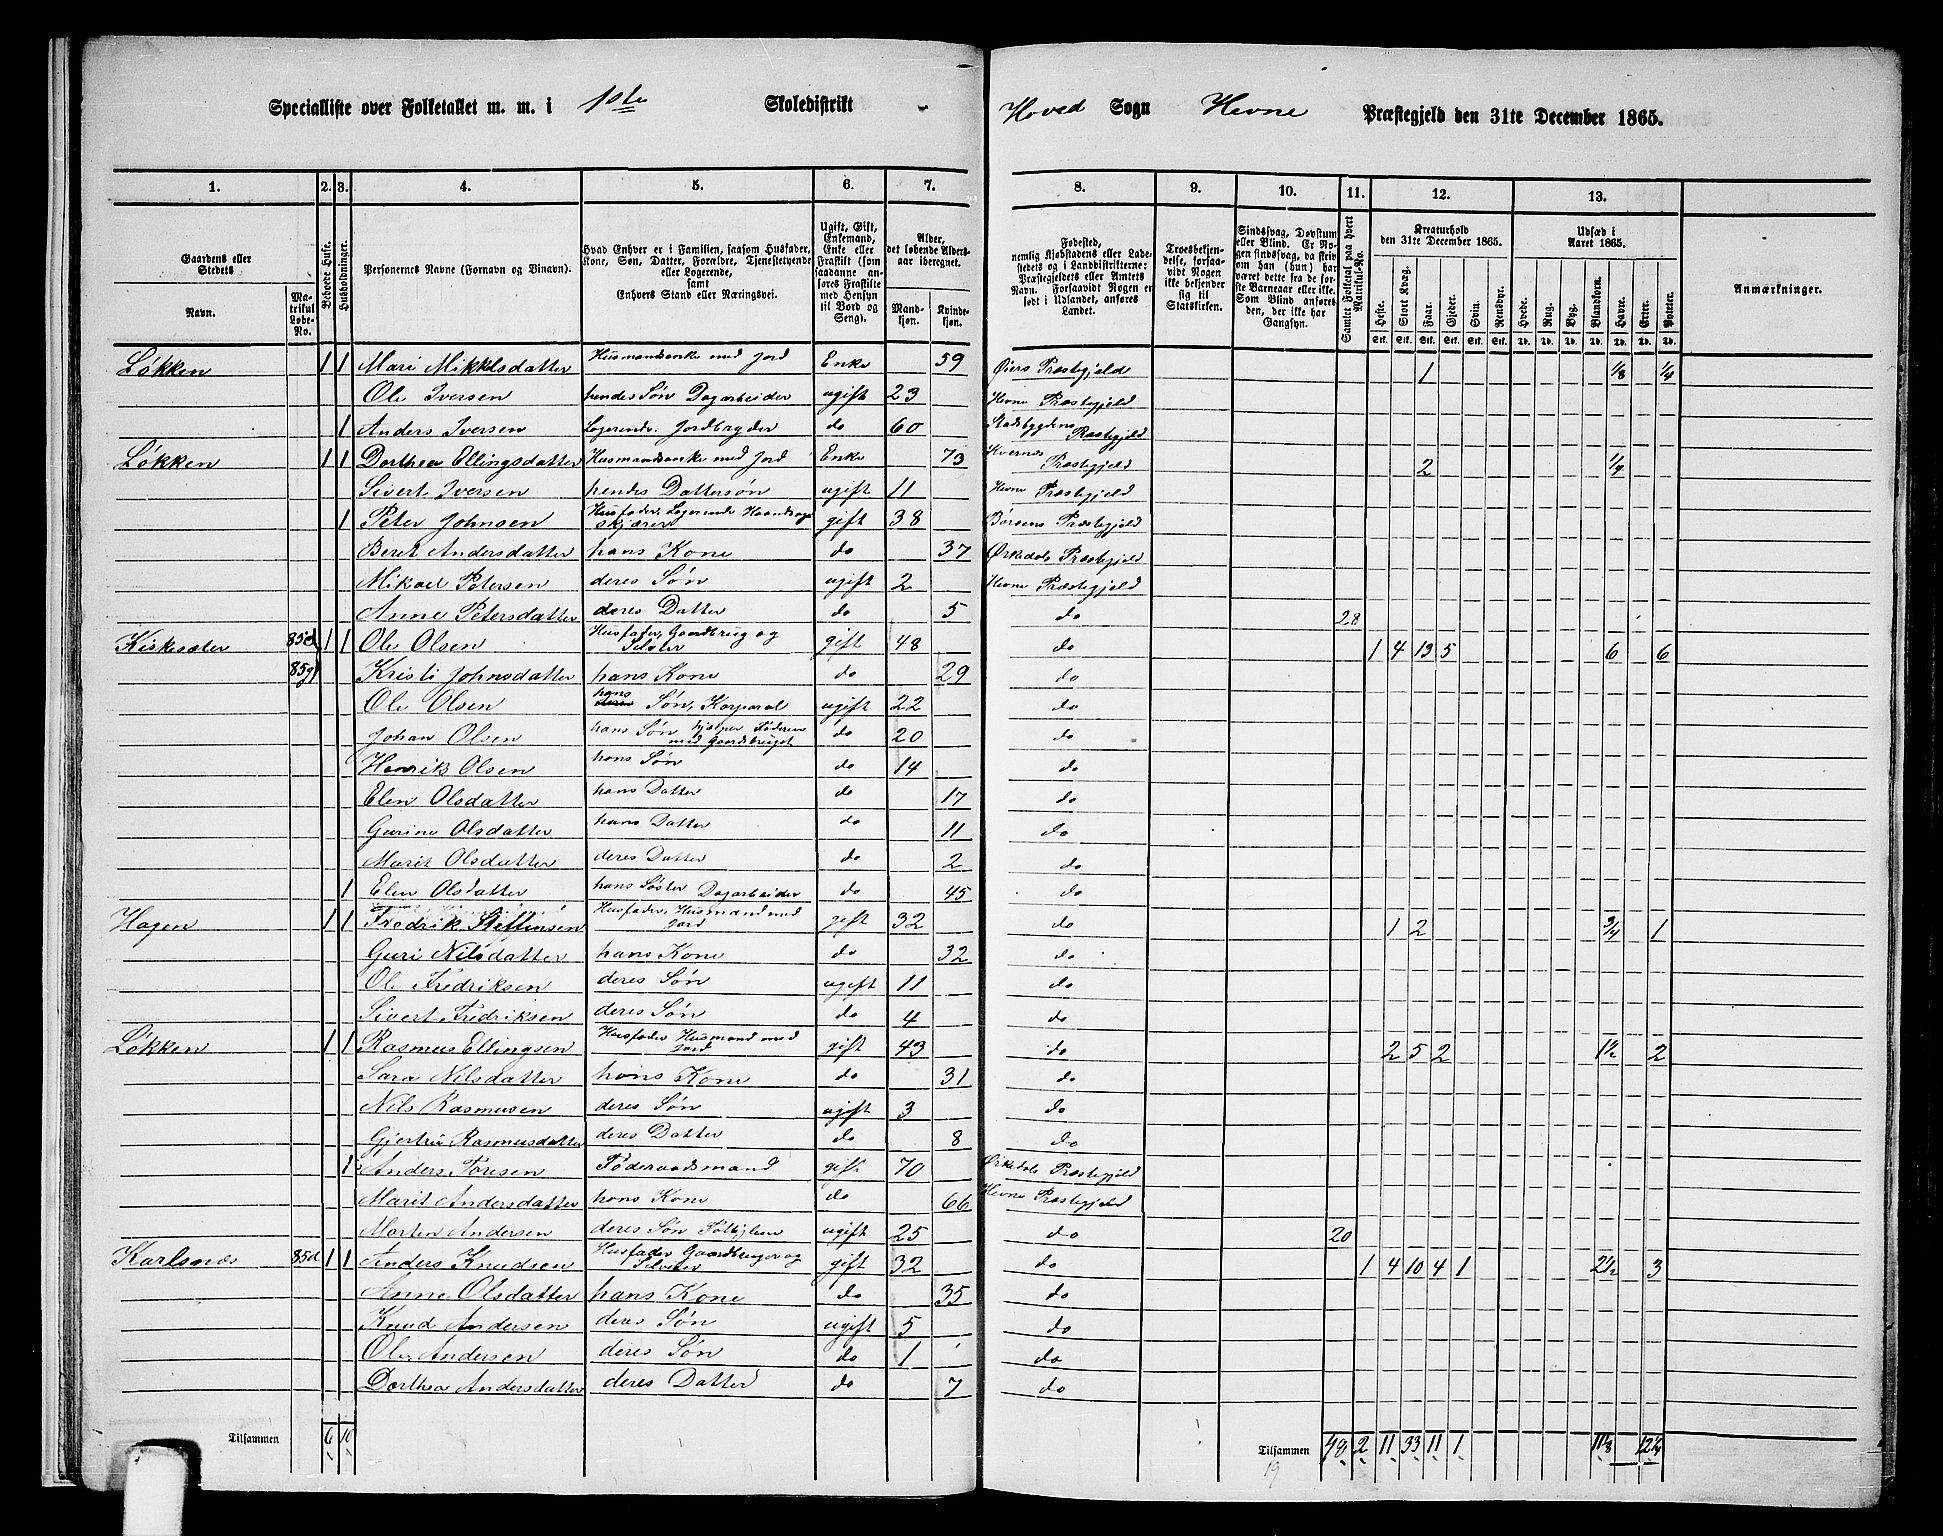 Specialliste over Folketallet m. m. i 1ste Skoledistrikt Hoved Sogn Hevne Præstegjeld den 31te December 1865.
1. 2. 3. 4. 5. 6. 7. 8. 9. 10. 11. 12. 13.
Gaardens eller Stedets Navn. Matrikul Løbe-No. Beboede Huse. Husholdninger. Personernes Navne (Fornavn og Binavn). Hvad Enhver er i Familien, saasom Husfader, Kone, Søn, Datter, Forældre, Tjenestetyende eller Logerende, samt Enhvers Stand eller Næringsvei. Ugift, Gift, Enkemand, Enke eller Fraskilt (som saadanne anføres Fraskilte med Hensyn til Bord og Seng). Alder, det løbende Alders-aar iberegnet. Mandkjøn. Kvindekjøn.
Fødested, nemlig Kjøbstadens eller Ladestedets og i Landdistrikterne: Præstegjeldets eller Amtets Navn. Forsaavidt Nogen er født i Udlandet, anføres Landet. Troesbekjendelse, forsaavidt Nogen ikke bekjender sig til Statskirken. Sindssvag, Døvstum eller Blind. Er Nogen sindssvag, da skrives om han (hun) har været dette fra de første Barneaar eller ikke. Som Blind anføres den, der ikke har Gangsyn. Samlet Folketal paa hvert Matrikul-No. Kreaturhold den 31te December 1865. Heste. Stort Kvæg. Faar. Gjeder. Svin. Rensdyr. Udsæd i Aaret 1865. Hvede. Rug. Byg. Blandkorn. Havre. Erter. Poteter. Anmærkninger.
Løkken 1 1 Mari Mikkelsdatter Husmandsenke med Jord Enke 59 Øiers Præstegjeld 1 1/8 1/4
Ole Iversen hendes Søn Dagarbeider ugift 23 Hevne Præstegjeld
1 Anders Iversen Logerende. Jordbryder do 60 Stadsbygdens Præstegjeld
Løkken 1 1 Dorthea Ellingsdatter Husmandsenke med Jord Enke 73 Kvernes Præstegjeld 2 1/4
Sivert Iversen hendes Dattersøn ugift 11 Hevne Præstegjeld
1 Peter Johnsen Husfader, Logerende skjærer gift 38 Børsens Præstegjeld
Beret Andersdatter hans Kone do 37 Ørkedals Præstegjeld
Mikael Petersen deres Søn ugift 2 Hevne Præstegjeld
Anne Petersdatter deres Datter do 5 do 28
Kirkesæter 85c 1 1 Ole Olsen Husfader, Gaardbrug og Selveier gift 48 do 1 4 13 5 6 6
85g Kristi Johnsdatter hans Kone do 29 do
Ole Olsen hans Søn, Korporal ugift 22 do
Johan Olsen hans Søn hjælper Faderen med Gaardsbruget do 20 do
Henrik Olsen hans Søn do 14 do
Elen Olsdatter hans Datter do 17 do
Gurine Olsdatter hans Datter do 11 do
Marit Olsdatter deres Datter do 2 do
1 Elen Olsdatter hans Søster Dagarbeider do 45 do
Hagen 1 1 Fredrik Steffensen Husfader, Husmand med Jord gift 32 do 1 2 3/4 1
Guri Nilsdatter hans Kone do 32 do
Ole Fredriksen deres Søn ugift 11 do
Sivert Fredriksen deres Søn do 4 do
Løkken 1 1 Rasmus Ellingsen Husfader Husmand med Jord gift 43 do 2 5 2 1 1/2 2
Sara Nilsdatter hans Kone do 31 do
Nils Rasmusen deres Søn ugift 3 do
Gjertru Rasmusdatter deres Datter do 8 do
1 Anders Toresen Føderaadsmand gift 70 Ørkedals Præstegjeld
Marit Andersdatter hans Kone do 66 Hevne Præstegjeld
Morten Andersen deres Søn ugift 25 do 20
Karlsnes 85d 1 1 Anders Knudsen Husfader Gaardbruger og Selveier gift 32 do 1 4 10 4 1 2 1/2 3
Anne Olsdatter hans Kone do 35 do
Knud Andersen deres Søn ugift 5 do
Ole Andersen deres Søn do 1 do
Dorthea Andersdatter deres Datter do 7 do
Tilsammen 6 10 Tilsammen 48 2 11 33 11 1 11 1/8 12 1/4
19